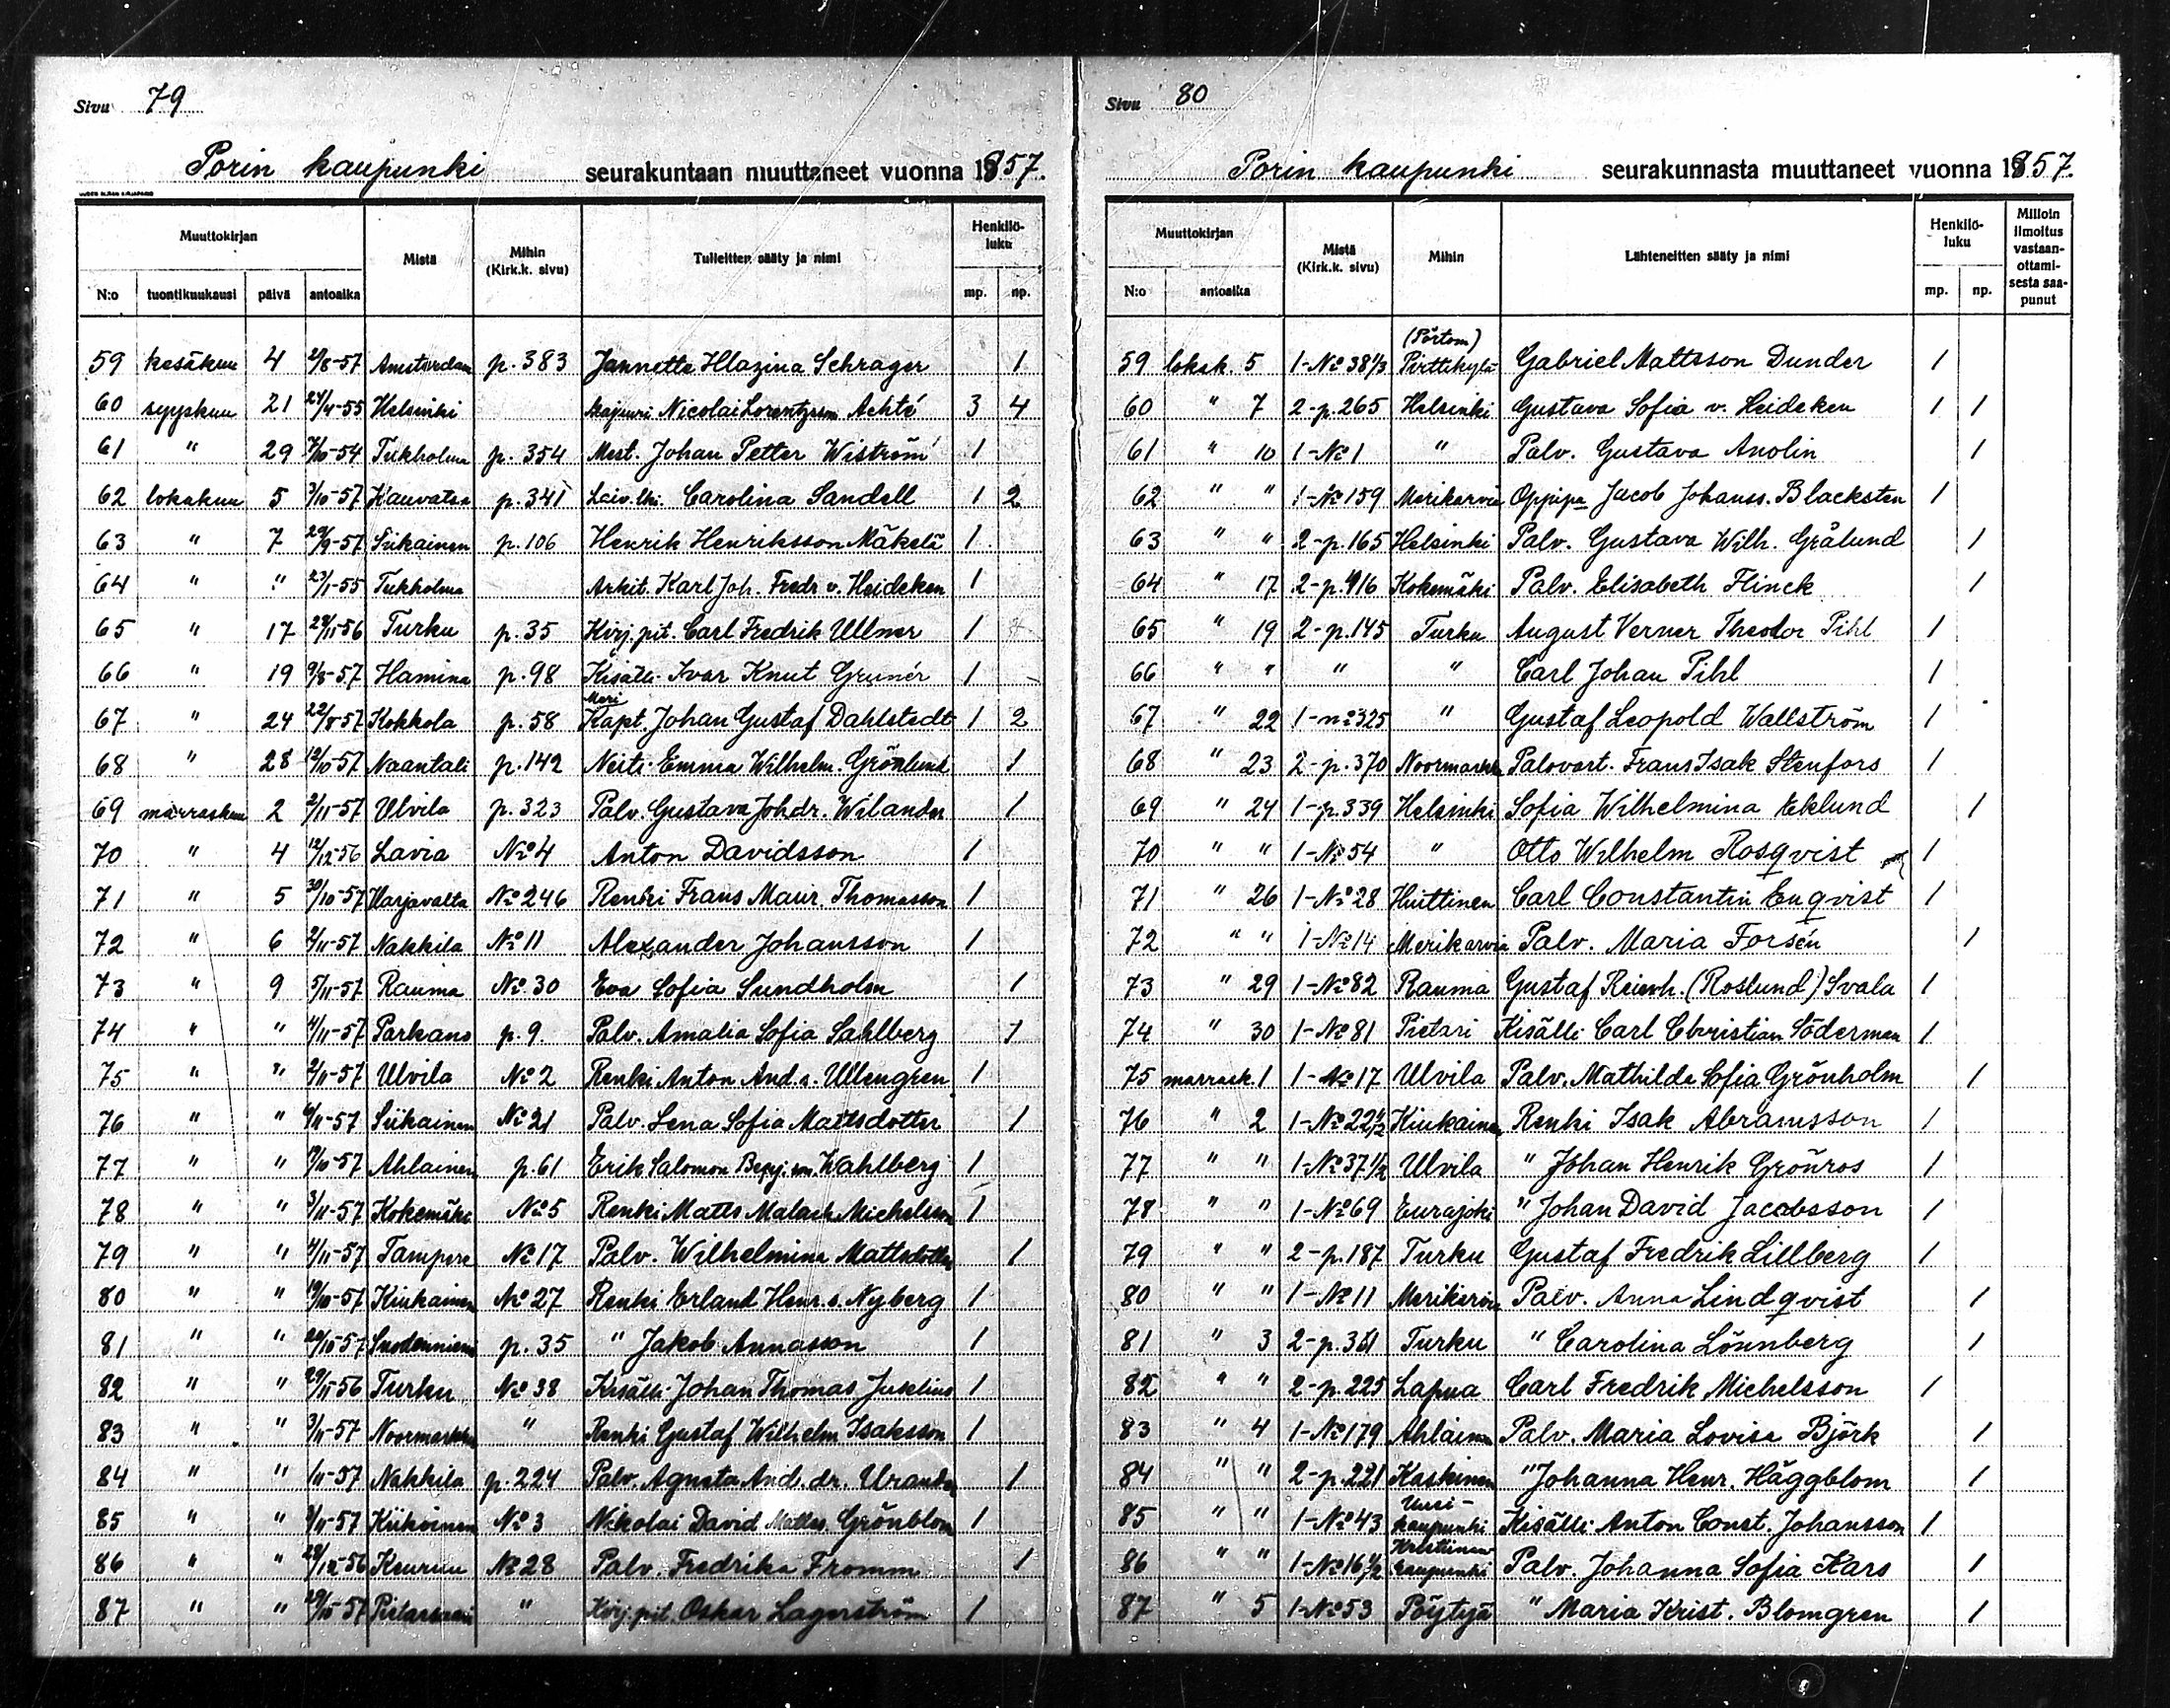 Sivu 79
Porin kaupunki seurakuntaan muuttaneet vuonna 1857.
Muuttokirjan Mistä Mihin (Kirk.k. sivu) Tulleitten sääty ja nimi Henkilö-luku
N:o tuontikuukausi päivä antoaika mp. np.
59 kesäkuu 4 Amsterdam p. 383 Jannette Hlazina Schrager 1
60 syyskuu 21 24/4-55 Helsinki Majuuri Nicolai Lorentzson Achté 3 4
61 " 29 7/10-54 Tukholma p. 354 Mest. Johan Petter Wiström 1
62 lokakuu 5 3/10-57 Kauvatsa p. 341 Laiv. lki. Carolina Sandell 1 2
63 " 7 29/9-57 Siikainen p. 106 Henrik Henriksson Mäkelä 1
64 " " 23/1-55 Tukholma Arkit. Karl Joh. Fredr v. Heideken 1
65 " 17 28/11 56 Turku p. 35 Kirj.pit. Carl Fredrik Ullner 1
66 " 19 9/8-57 Hamina p. 98 Kisälli Ivar Knut Grunér 1
67 " 24 22/8-57 Kokkola p. 58 Meri Kapt. Johan Gustaf Dahlstedt 1 2
68 " 28 12/10-57 Naantali p. 142 Neiti Emma Wilhelm. Grönlund 1
69 marraskuu 2 2/11-57 Ulvila p. 323 Palv. Gustava Joh.dr. Wilander 1
70 " 4 12/12-56 Lavia No 4 Anton Davidsson 1
71 " 5 30/10-57 Harjavalta No 246 Renki Frans Maur. Thomasson 1
72 " 6 2/11-57 Nakkila No 11 Alexander Johansson 1
73 " 9 5/11-57 Rauma No 30 Eva Sofia Sundholm 1
74 " " 4/11-57 Parkano p. 9. Palv. Amalia Sofia Sahlberg 1
75 " " 2/11-57 Ulvila No 2 Renki Anton And.s. Ullengren 1
76 " " 6/11-57 Siikainen No 21 Palv. Lena Sofia Mattsdotter 1
77 " " 17/10-57 Ahlainen p. 61 Erik Salomon Benj.son. Wahlberg 1
78 " " 3/11-57 Kokemäki No 5 Renki Matts Malach. Michelsson 1
79 " " 4/11-57 Tampere No 17 Palv. Wilhelmina Mattsdotter 1
80 " " 19/10-57 Kiukainen No 27 Renki Erland Henr.s. Nyberg 1
81 " " 24/10-57 Suodenniemi p. 35 " Jakob Annasson 1
82 " " 29/11 56 Turku No 38 Kisälli Johan Thomas Juselius 1
83 " " 3/11-57 Noormarkku " Renki Gustaf Wilhelm Isaksson 1
84 " " /11-57 Nakkila p. 224 Palv. Agusta And. dr. Urander 1
85 " " /11-57 Kiikoinen No 3 Nikolai David Matts. Grönblom 1
86 " " 28/12-56 Keuruu No 28 Palv. Fredrika Fromm 1
87 " " 29/10-57 Pietarsaari " Kirj.pit. Oskar Lagerström 1
Sivu 80
Porin kaupunki seurakunnasta muuttaneet vuonna 1857.
Muuttokirjan Mistä (Kirk.k. sivu) Mihin Lähteneitten sääty ja nimi Henkilö-luku Milloin ilmoitus vastaan-ottami-sesta saa-punut
N:o antoaika mp. np.
59 lokak. 5 1-No 38 1/3 (Pörtom) Pirttikylä Gabriel Mattsson Dunder 1
60 " 7 2-p. 265 Helsinki Gustava Sofia v. Heideken 1 1
61 " 10 1-No 1 " Palv. Gustava Anolin 1
62 " " 1-No 159 Merikarvia Oppipa Jacob Johanss. Blacksten 1
63 " " 2-p. 165 Helsinki Palv. Gustava Wilh. Grålund 1
64 " 17 2-p. 416 Kokemäki Palv. Elisabeth Flinck 1
65 " 19 2-p. 145 Turku August Verner Theodor Pihl 1
66 " " " " Carl Johan Pihl 1
67 " 22 1-no 325 " Gustaf Leopold Wallström 1
68 " 23 2-p. 370 Noormarkku Palovart. Frans Isak Stenfors 1
69 " 24 1-p. 339 Helsinki Sofia Wilhelmina Eklund 1
70 " " 1-No 54 " Otto Wilhelm Rosqvist 1
71 " 26 1-No 28 Huittinen Carl Constantin Enqvist 1
72 " " 1-No 14 Merikarvia Palv. Maria Forsén 1
73 " 29 1-No 82 Rauma Gustaf Reinh. (Roslund) Svala 1
74 " 30 1-No 81 Pietari Kisälli Carl Christian Söderman 1
75 marrask. 1 1-No 17 Ulvila Palv. Mathilda Sofia Grönholm 1
76 " 2 1-No 22 1/2 Kiukainen Renki Isak Abramsson 1
77 " " 1-No 37 1/2 Ulvila " Johan Henrik Grönros 1
78 " " 1-No 69 Eurajoki " Johan David Jacobsson 1
79 " " 2-p. 187 Turku Gustaf Fredrik Lillberg 1
80 " " 1-No 11 Merikarvia Palv. Anna Lindqvist 1
81 " 3 2-p. 361 Turku " Carolina Lönnberg 1
82 " " 2-p. 225 Lapua Carl Fredrik Michelsson 1
83 " 4 1-No 179 Ahlainen Palv. Maria Lovisa Björk 1
84 " " 2-p. 221 Kaskinen " Johanna Henr. Häggblom 1
85 " " 1-No 43 Uusi-kaupunki Kisälli Anton Const. Johansson 1
86 " " 1-No 16 1/2 Kristiinan kaupunki Palv. Johanna Sofia Kars 1
87 " 5 1-No 53 Pöytyä " Maria Krist. Blomgren 1